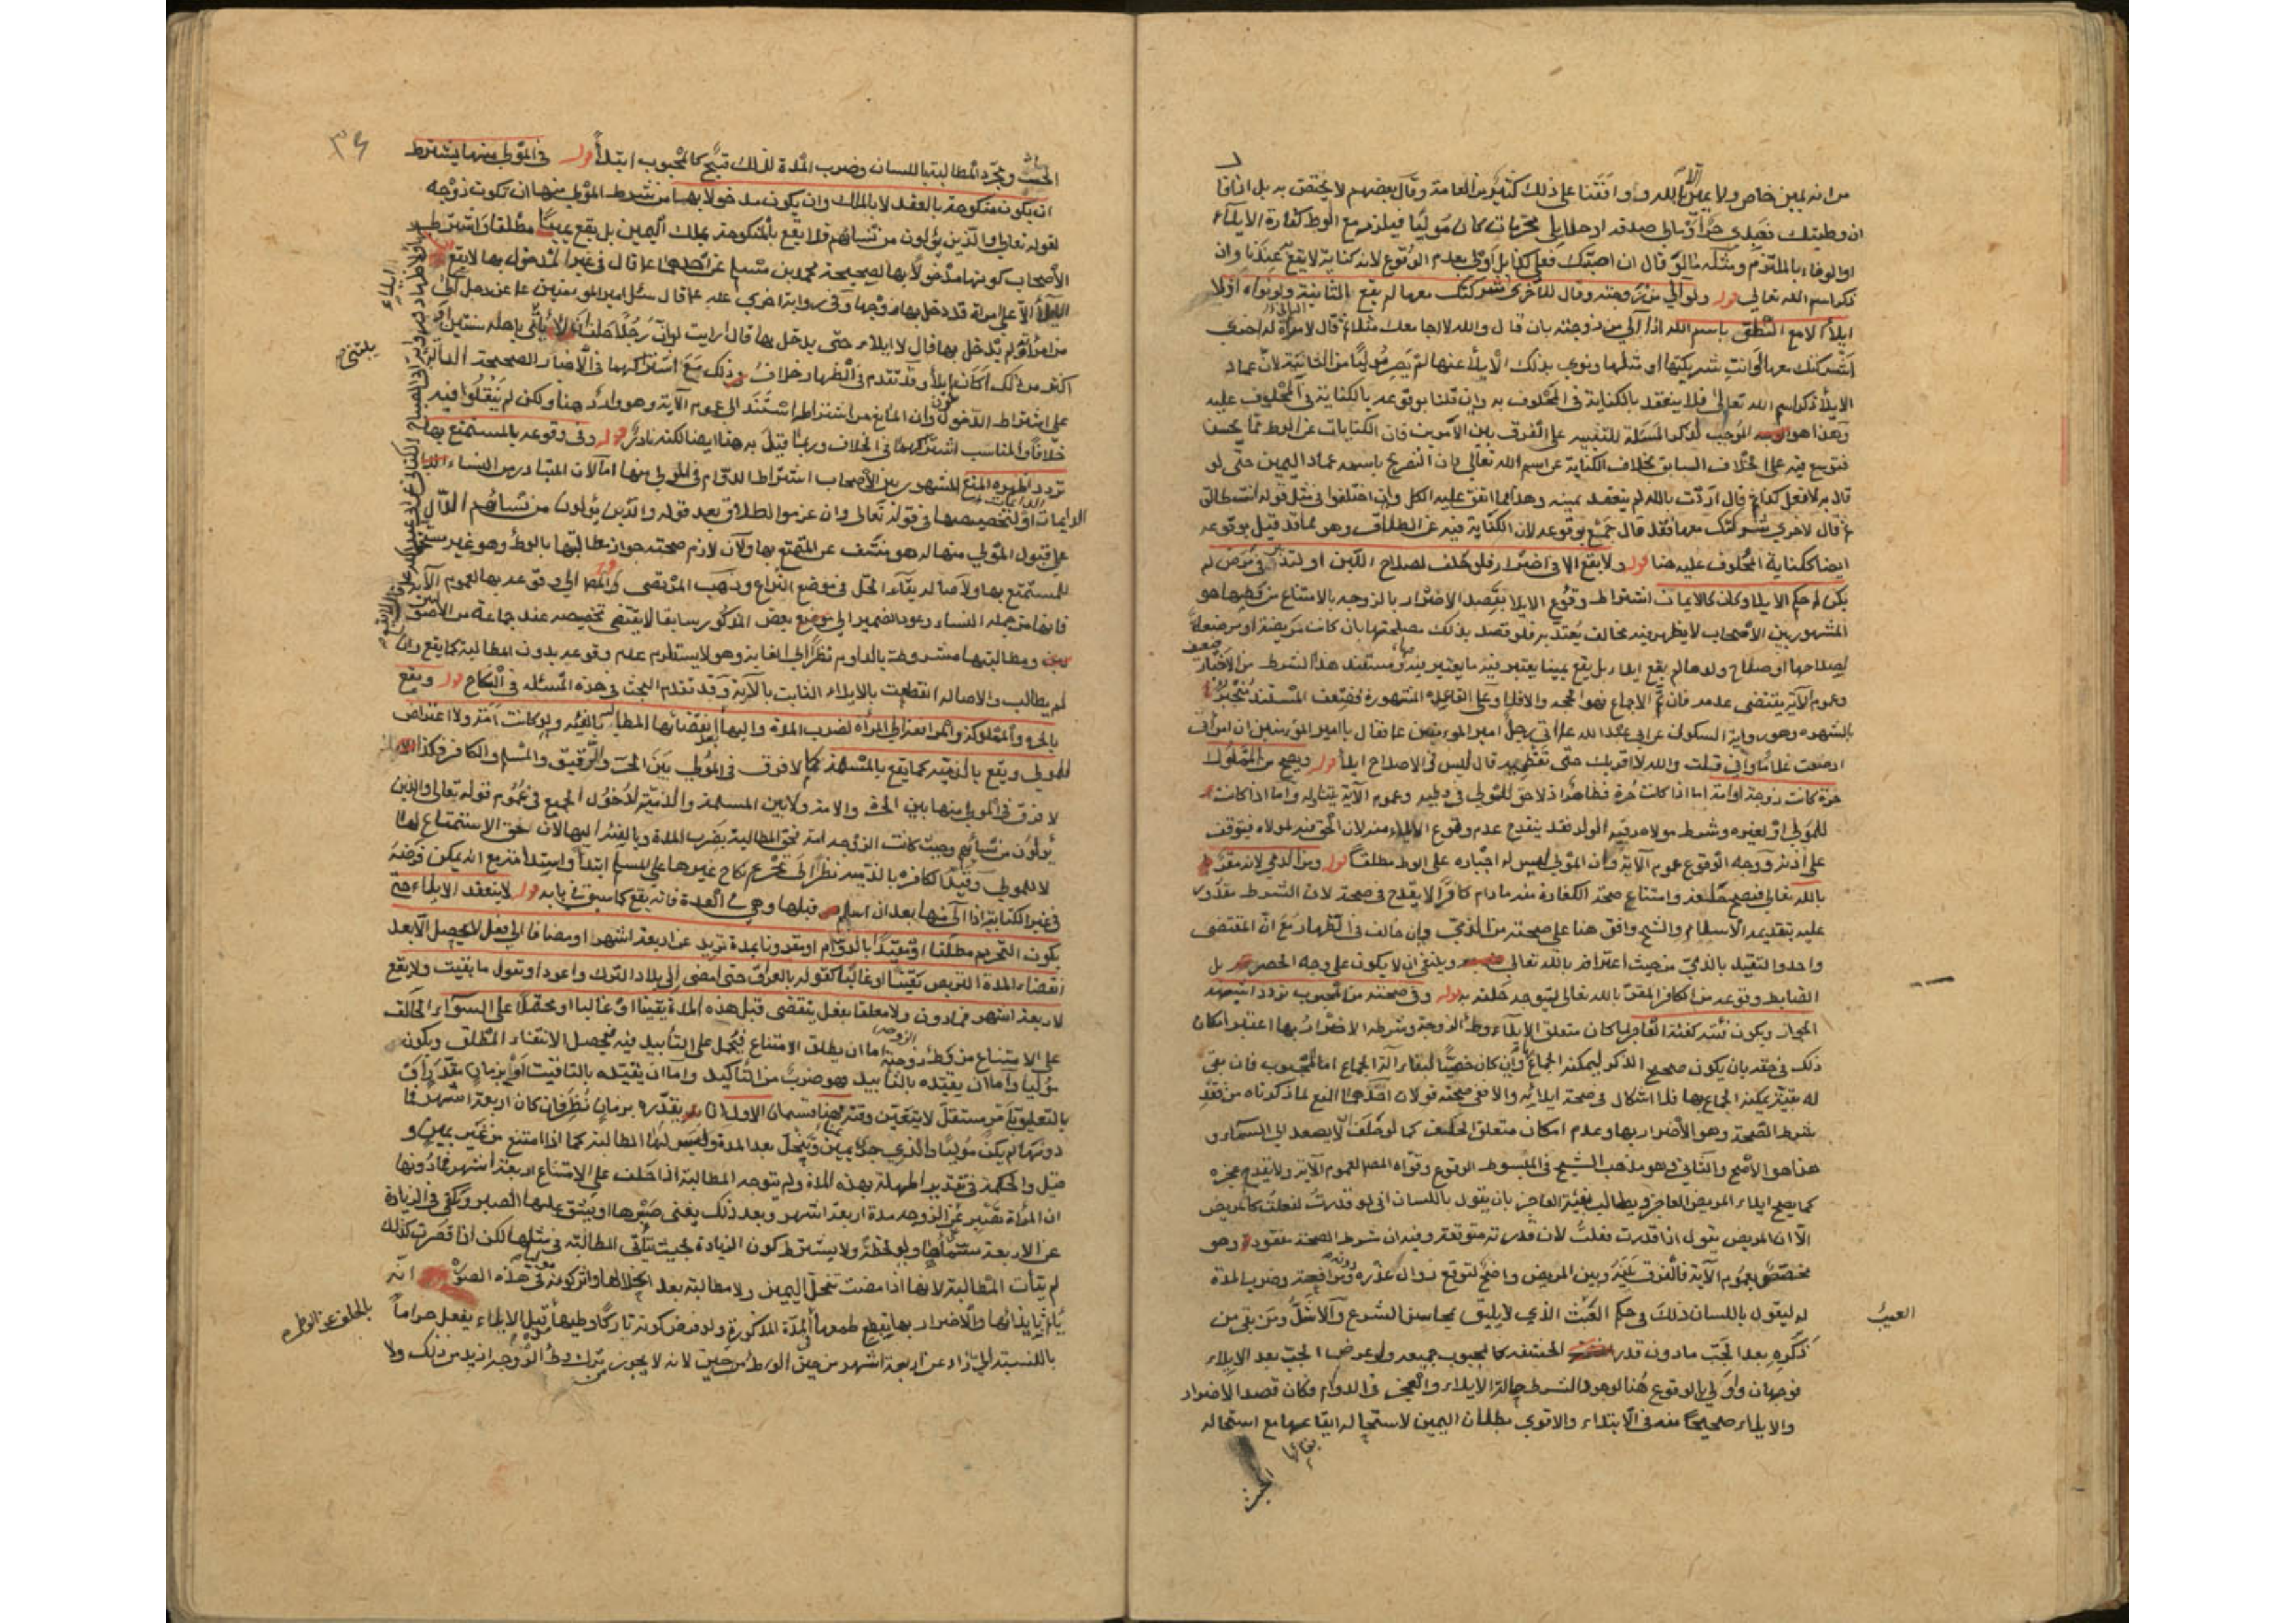 من انه يمين خاص ولا يمين الا بالله ووافقنا على ذلك كثير من العامة وقال بعضهم لا يختص به بل اذا قا
ان وطيتك فعبدي حر او مالي صدقة او حلايلي محرمات كان موليا فيلزمه مع الوطء كفارة الايلاء
او الوفاء بالملتزم ومثله ما لو قال ان اصبتك فعلي كذا بل اولى بعدم الوقوع لانه كناية لا يقع عندنا وان
ذكر اسم الله تعالى قوله ولو آلى من زوجته وقال للاخرى شركتك معها لم يقع بالثانية ولو نواه اذ لا
ايلاء الا مع النطق باسم الله اذا آلى من زوجته بان قال والله لا اجامعك مثلا ثم قال لامراة له اخرى
اشركتك معها او انت شريكتها او مثلها ونوى بذلك الايلاء عنها لم يصر موليا من الثانية لان عماد
الايلاء ذكر اسم الله تعالى فلا ينعقد بالكناية في المحلوف به وان قلنا بوقوعه بالكناية في المحلوف عليه
وهذا هو الموجب لذكر المسئلة للتنبيه على الفرق بين الامرين فان الكنايات عن الوطء مما يحسن
فتوسع فيه على الخلاف السابق بخلاف الكناية عن اسم الله تعالى فان التصريح باسمه عماد اليمين حتى لو
قال به لافعل كذا ثم قال اردت بالله لم ينعقد يمينه وهذا مما اتفق عليه الكل وان اختلفوا في مثل قوله انت طالق
ثم قال لاخرى شركتك معها فقد قال جمع بوقوعه لان الكناية فيه عن الطلاق وهو مما قد قيل بوقوعه
ايضا ككناية المحلوف عليه هنا قوله ولا يقع الا في اضرار فلو حلف لصلاح اللبن او لتدبير في مرض لم
يكن له حكم الايلاء وكان كالايمان اشتراط وقوع الايلاء بقصد الاضرار بالزوجة بالامتناع من وطيها هو
المشهور بين الاصحاب لا يظهر فيه مخالف يعتد به فلو قصد بذلك مصلحتها بان كانت مريضة او مرضعة
لصلاحها او صلاح ولدها لم يقع ايلاء بل يقع يمينا يعتبر فيه ما يعتبر فيه ومستند هذا الشرط من الاخبار ضعف
وعموم الآية يقتضي عدمه فان تم الاجماع فهو الحجة والا فلا وعلى القاعدة المشهورة فضعف المستند منجبر
بالشهرة وهو رواية السكوني عن ابي عبد الله ع اتى رجل امير المؤمنين ع فقال يا امير المؤمنين ان امراتي
ارضعت غلاما واني قلت والله لا اقربك حتى تفطميه قال ليس في الاصلاح ايلاء قوله ويصح من المملوك
حرة كانت زوجته او امة اما اذا كانت حرة فظاهر اذ لا حق للمولى في وطيه وعموم الآية يتناوله واما اذا كانت امة
للمولى او لغيره وشرط مولاه رقية الولد فقد ينقدح عدم وقوع الايلاء منه لان الحق فيه لمولاه فيتوقف
على اذنه ووجه الوقوع عموم الآية وان المولى ليس له اجباره على الوطء مطلقا قوله ومن الذمي لانه مقر
بالله تعالى فيصح حلفه وامتناع صحة الكفارة منه مادام كافرا لا يقدح في صحته لان الشرط مقدور
عليه بتقديمه الاسلام والشيخ وافق هنا على صحته من الذمي وان خالف في الظهار مع ان المقتضي
واحد والتقييد بالذمي من حيث اعترافه بالله تعالى وينبغي ان لا يكون على وجه الحصر بل
الضابط وقوعه من الكافر المقر بالله تعالى ليتوجه حلفه به قوله وفي صحته من المجبوب تردد اشبهه
الجواز ويكون فئته كفئة العاجز لما كان متعلق الايلاء وطء الزوجة وشرطه الاضرار بها اعتبر امكان
ذلك في حقه بان يكون صحيح الذكر ليمكنه الجماع وان كان خصيا لبقاء آلة الجماع اما المجبوب فان بقي
له بقية يمكنه الجماع بها فلا اشكال في صحة ايلائه والا ففي صحته قولان احدهما المنع لما ذكرناه من فقد
شرط الصحة وهو الاضرار بها وعدم امكان متعلق الحلف كما لو حلف ان لا يصعد الى السماء و
هذا هو الاصح والثاني وهو مذهب الشيخ في المبسوط الوقوع وقواه المص لعموم الآية ولا يقدح عجزه
كما يصح ايلاء المريض العاجز ويطالب بفئة العاجز بان يقول باللسان اني لو قدرت لفعلت كالمريض
الا ان المريض يقول اذا قدرت فعلت لان قدرته متوقعة وفيه ان شرط الصحة مفقود وهو
مخصص بعموم الآية فالفرق بينه وبين المريض واضح لتوقع زوال عذره دونه ومرافعته وضرب المدة
له ليقول باللسان ذلك في حكم العبث الذي لا يليق بمحاسن الشرع والاشل ومن بقي من
العبث
ذكره بعد الجب مادون قدر الحشفة كالمجبوب جميعه ولو عرض الجب بعد الايلاء
فوجهان واولى بالوقوع هنا لوجود الشرط حالة الايلاء والعجز في الدوام فكان قصد الاضرار
والايلاء صحيحا منه في الابتداء والاقوى بطلان اليمين لاستحالة ايقاعها مع استحالة
بقائها
الحنث
٣٦
الحنث ومجرد المطالبة باللسان وضرب المدة لذلك قبيح كالمجبوب ابتداء قوله في المولى منها يشترط
ان يكون منكوحة بالعقد لا بالملك وان يكون مدخولا بها من شرط المولى منها ان تكون زوجة
لقوله تعالى والذين يؤلون من نسائهم فلا يقع بالمنكوحة بملك اليمين بل يقع يمينا مطلقا واشترط
الاصحاب كونها مدخولا بها لصحيحة محمد بن مسلم عن احدهما ع قال في غير المدخول بها لا يقع
ايلاء
الا على امراة قد دخل بها زوجها وفي رواية اخرى عنه ع قال سئل امير المومنين ع عن رجل آلى
من امراته ولم يدخل بها قال لا ايلاء حتى يدخل بها قال ارايت لو ان رجلا حلف ان لا يأتي باهله سنتين او
اكثر من ذلك اكان ايلاء وقد تقدم في الظهار خلاف وذلك مع اشتراكهما في الاخبار الصحيحة الدالة
على اشتراط الدخول وان المانع من اشتراط استند الى عموم الآية وهو وارد هنا ولكن لم ينقلوا فيه
خلافا والمناسب اشتراكهما في الخلاف وربما قيل به هنا ايضا لكنه نادر قوله وفي وقوعه بالمستمتع بها
تردد اظهره المنع المشهور بين الاصحاب اشتراط الدوام في المولى منها امالان المتبادر من النساء
الدايمات او لتخصيصها في قوله تعالى وان عزموا الطلاق بعد قوله والذين يؤلون من نسائهم الدال
على قبول المولى منها له هو منتف عن المتمتع بها ولان لازم صحته جواز مطالبتها بالوطء وهو غير مستحق
للمستمتع بها ولاصالة بقاء الحل في موضع النزاع وذهب المرتضى الى وقوعه بها لعموم الآية
فانها من جملة النساء وعود الضمير الى بعض المذكور سابقا لا يقتضي تخصيصه عند جماعة من الاصو
ليين ومطالبتها مشروطة بالداوم نظرا الى الغاية وهو لا يستلزم عدم وقوعه بدون المطالبة كما يقع وان
لم يطالب والاصالة انقطعت بالايلاء الثابت بالآية وقد تقدم البحث في هذه المسئلة في النكاح قوله ويقع
بالحرة والمملوكة والمرافعة الى المراة لضرب المدة واليها بعد انقضائها المطالبة بالفئة ولو كانت امة ولا اعتراض
للمولى ويقع بالذمية كما يقع بالمسلمة كما لا فرق في المولي بين الحر والرقيق والمسلم والكافر فكذا
لا فرق في المولى منها بين الحرة والامة ولا بين المسلمة والذمية لدخول الجميع في عموم قوله تعالى والذين
يؤلون من نسائهم وحيث كانت الزوجة امة فحق المطالبة بضرب المدة وبالفئة اليها لان حق الاستمتاع لها
لا للمولى وقيد الكافرة بالذمية نظرا الى تحريم نكاح غيرها على المسلم ابتداء واستدامة مع انه يمكن فرضه
في غير الكتابية اذا آلى منها بعد ان اسلم قبلها وهي في العدة فانه يقع كما سبق في بابه قوله لا ينعقد الايلاء حتى
يكون التحريم مطلقا او مقيدا بالدوام او مقرونا بمدة تزيد عن اربعة اشهر او مضافا الى فعل لا يحصل الا بعد
انقضاء المدة التربص يقينا او غالبا كقوله بالعراق حتى امضي الى بلاد الترك واعود او تقول ما بقيت ولا يقع
لاربعة اشهر فما دون ولا معلقا بفعل ينقضي قبل هذه المدة يقينا او غالبا او محتملا على السواء الحالف
على الامتناع من وطء زوجته اما ان يطلق الامتناع فيحمل على التأبيد فيه فيحصل الانتفاء المطلق ويكون
موليا واما ان يقيده بالتابيد وهو ضرب من التأكيد واما ان يقيده بالتاقيت او بزمان مقدر او
بالتعليق بامر مستقبل لا يتعين وقته فهنا قسمان الاول ان يقدره بزمان نظر فان كان اربعة اشهر فما
دونها لم يكن موليا والذي جرى يمين وتنحل بعد المدة وليس لها المطالبة كما اذا امتنع من غير يمين و
قيل والحكمة في تقدير المهلة بهذه المدة ولم يتوجه المطالبة اذا حلف على الامتناع اربعة اشهر فما دونها
ان المراة تصبر عن الزوج مدة اربعة اشهر وبعد ذلك يفنى صبرها او يشق عليها الصبر ويكفي في الزيادة
عن الاربعة مسماها ولو لحظة ولا يشترط كون الزيادة بحيث تتأتى المطالبة في مثلها لكن اذا قصرت كذلك
لم يتأت المطالبة لانها اذا مضت تنحل اليمين ولا مطالبة بعد انحلالها واثر كونه موليا في هذه الصورة انه
يأثم بايذائها والاضرار بها بقطع طمعها المدة المذكورة ولو فرض كونه تاركا وطيها قبل الايلاء يفعل حراما
بالحلف عن الوطء
بالنسبة الى ما زاد عن اربعة اشهر من حين الوطء لانه لا يجوز ترك وطء الزوجة ازيد من ذلك ولا